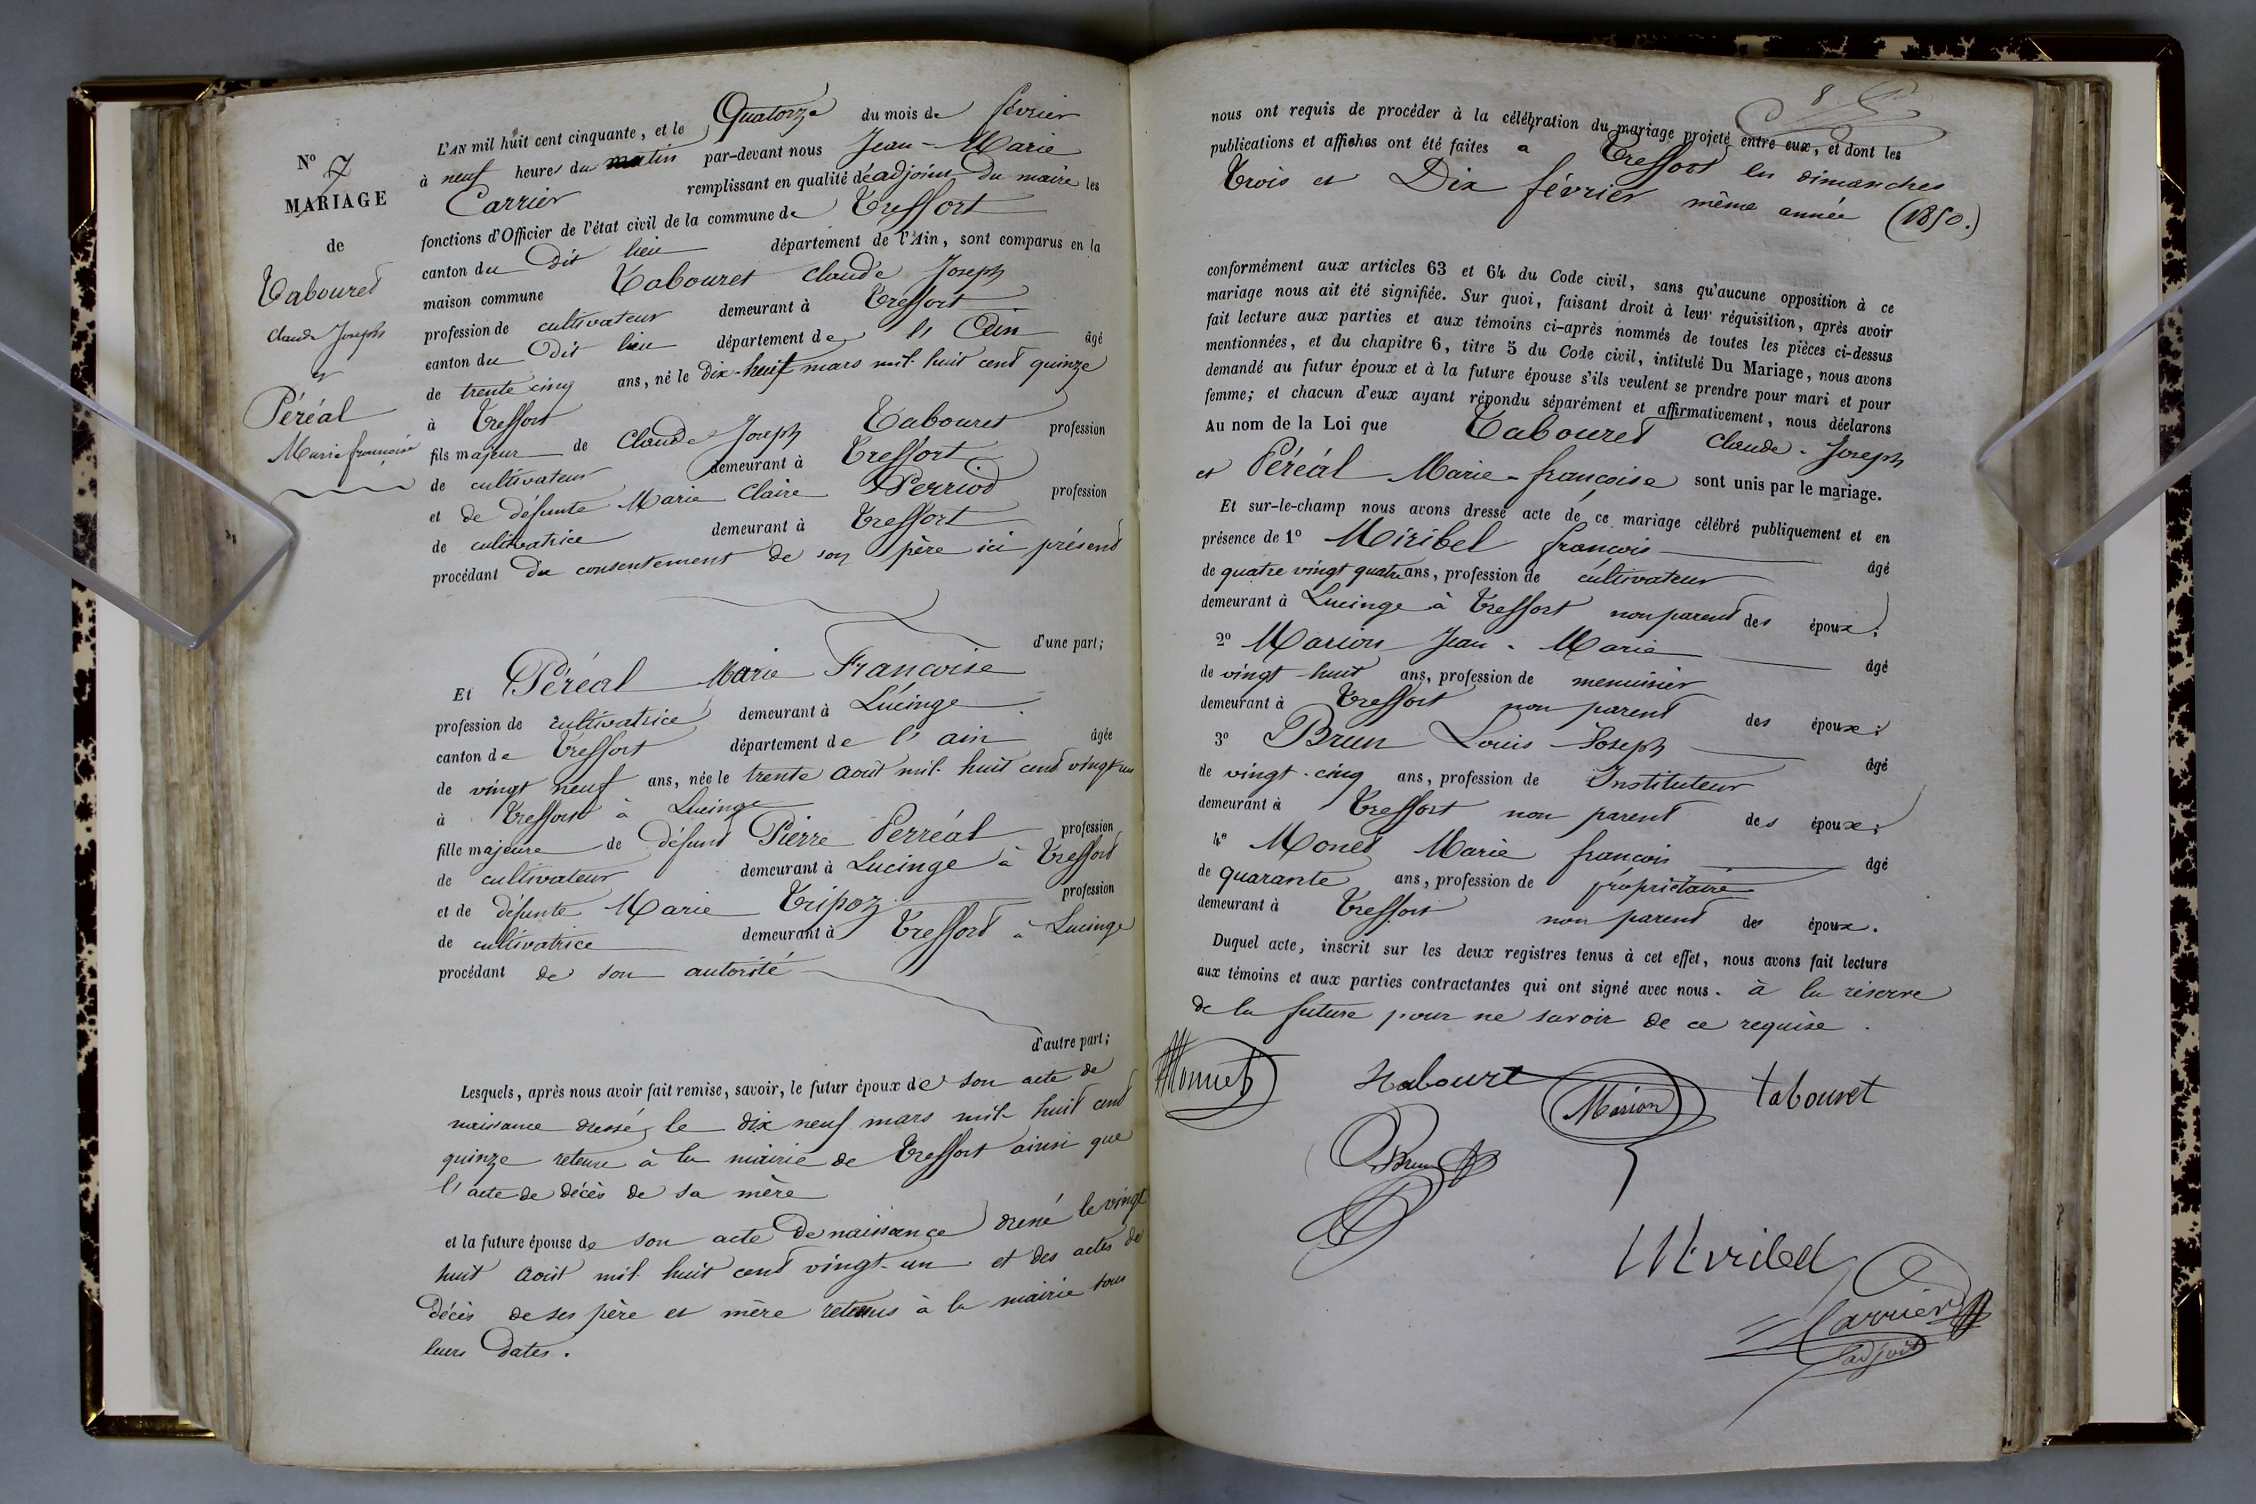 N° 7
MARIAGE
de
Tabouret
Claude Joseph
et
Péréal
Marie françoise
L'AN mil huit cent cinquante, et le Quatorze du mois de février
à neuf heures du matin par-devant nous Jean-Marie
Carrier remplissant en qualité de adjoint du maire les
fonctions d'Officier de l'état civil de la commune de Treffort
canton du dit lieu département de l'Ain, sont comparus en la
maison commune Tabouret Claude Joseph
profession de cultivateur demeurant à Treffort
canton du dit lieu département de l'Ain âgé
de trente cinq ans, né le dix-huit mars mil huit cent quinze
à Treffort
fils majeur de Claude Joseph Tabouret profession
de cultivateur demeurant à Treffort
et de défunte Marie Claire Perriod profession
de cultivatrice demeurant à Treffort
procédant du consentement de son père ici présent
d'une part;
Et Péréal Marie Françoise
profession de cultivatrice demeurant à Lucinge
canton de Treffort département de l'ain âgée
de vingt neuf ans, née le trente août mil huit cent vingt un
à Treffort à Lucinge
fille majeure de défunt Pierre Perréal profession
de cultivateur demeurant à Lucinge à Treffort
et de défunte Marie Tripoz profession
de cultivatrice demeurant à Treffort à Lucinge
procédant de son autorité
d'autre part;
Lesquels, après nous avoir fait remise, savoir, le futur époux de son acte de
naissance dressé le dix neuf mars mil huit cent
quinze retenu à la mairie de Treffort ainsi que
l'acte de décès de sa mère
et la future épouse de son acte de naissance dressé le vingt
huit août mil huit cent vingt-un et des actes de
décès de ses père et mère retenus à la mairie sous
leurs dates.
8
nous ont requis de procéder à la célébration du mariage projeté entre eux, et dont les
publications et affiches ont été faites à Treffort les dimanches
Trois et Dix février même année (1850.)
conformément aux articles 63 et 64 du Code civil, sans qu'aucune opposition à ce
mariage nous ait été signifiée. Sur quoi, faisant droit à leur réquisition, après avoir
fait lecture aux parties et aux témoins ci-après nommés de toutes les pièces ci-dessus
mentionnées, et du chapitre 6, titre 5 du Code civil, intitulé Du Mariage, nous avons
demandé au futur époux et à la future épouse s'ils veulent se prendre pour mari et pour
femme; et chacun d'eux ayant répondu séparément et affirmativement, nous déclarons
Au nom de la Loi que Tabouret Claude-Joseph
et Péréal Marie-françoise sont unis par le mariage.
Et sur-le-champ nous avons dressé acte de ce mariage célébré publiquement et en
présence de 1° Miribel françois âgé
de quatre vingt quatre ans, profession de cultivateur
demeurant à Lucinge à Treffort non parent des époux;
2° Marion Jean-Marie âgé
de vingt-huit ans, profession de menuisier
demeurant à Treffort non parent des époux;
3° Brun Louis Joseph âgé
de vingt-cinq ans, profession de Instituteur
demeurant à Treffort non parent des époux;
4° Monet Marie françois âgé
de quarante ans, profession de propriétaire
demeurant à Treffort non parent des époux.
Duquel acte, inscrit sur les deux registres tenus à cet effet, nous avons fait lecture
aux témoins et aux parties contractantes qui ont signé avec nous. à la réserve
de la future pour ne savoir de ce requise.
Monnet Tabouret Marion tabouret
Brun
Miribel
Carrier
adjoint